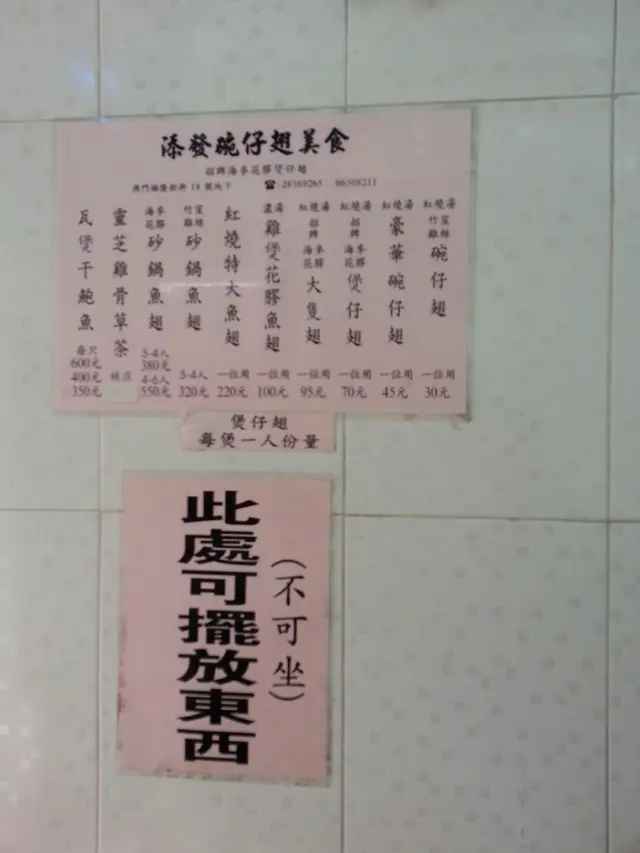 添發碗仔翅美食
招牌海參花膠煲仔翅
澳門福隆新街 18 號地下 ☎ 28389265 66508211
紅燒湯 竹笙雞絲 碗仔翅 一位用 30元
紅燒湯 豪華碗仔翅 一位用 45元
紅燒湯 招牌 海參花膠 煲仔翅 一位用 70元
紅燒湯 招牌 海參花膠 大隻翅 一位用 95元
濃湯 雞煲花膠魚翅 一位用 100元
紅燒特大魚翅 一位用 220元
竹笙雞絲 砂鍋魚翅 3-4人 320元
海參花膠 砂鍋魚翅 3-4人 380元 4-6人 550元
靈芝雞骨草茶
瓦煲干鮑魚 每只 600元 400元 350元
煲仔翅
每煲一人份量
此處可擺放東西
（不可坐）